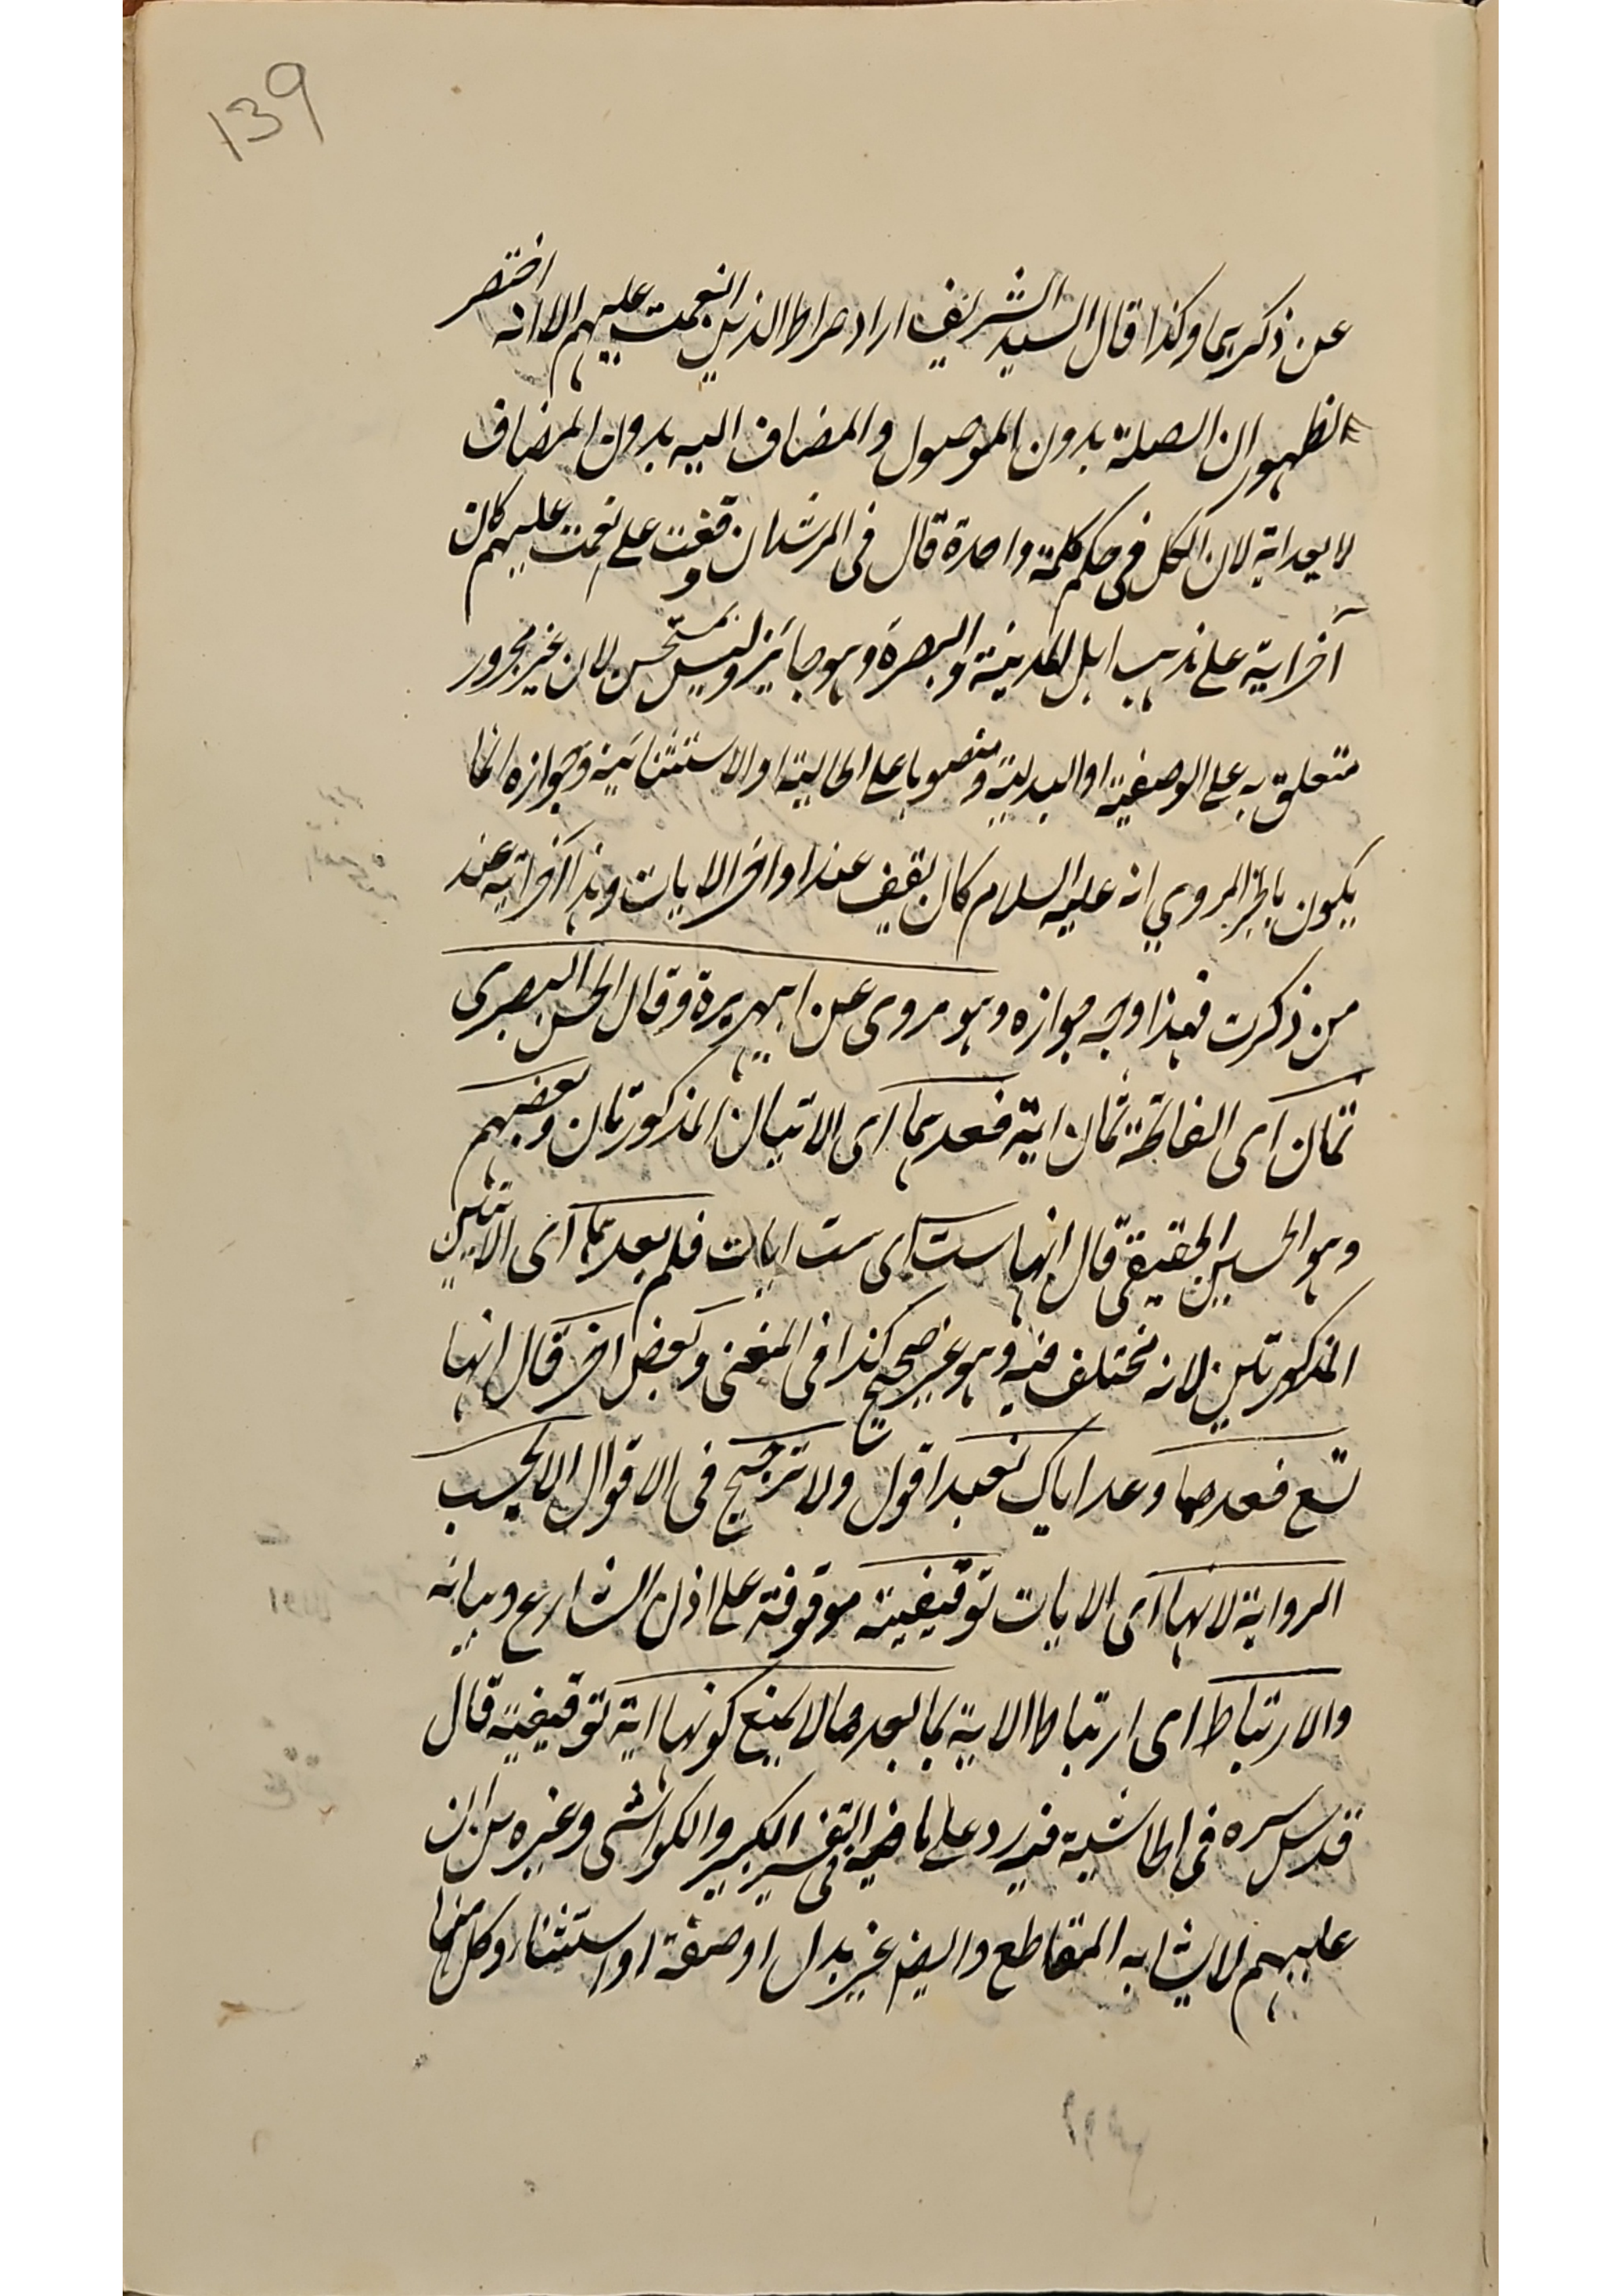 139
عن ذكرهما وكذا قال السيد الشريف اراد صراط الذين انعمت عليهم الا انه اختصر
لظهور ان الصلة بدون الموصول والمضاف اليه بدون المضاف
لا يعد اية لان الكل فى حكم كلمة واحدة قال فى المرشد ان وقفت على انعمت عليهم كان
آخر اية على مذهب اهل المدينة والبصرة وهو جائز وليس بمستحسن لان غير مجرور
متعلق به على الوصفية او البدلية ومنصوبا على الحالية او الاستثنائية وجوازه انما
يكون بالخبر المروي انه عليه السلام كان يقف عند اواخر الايات وهذا آخر اية عند
من ذكرت فهذا وجه جوازه وهو مروى عن ابى هريرة وقال الحسن البصرى
ثمان اى الفاتحة ثمان اية فعدهما اى الايتان المذكورتان وبعضهم
وهو الحسين الجعفى قال انها ست اى ست ايات فلم يعدهما اى الايتين
المذكورتين لانه مختلف فيه وهو غير صحيح كذا فى المغنى وبعض اخر قال انها
تسع فعدهما وعد اياك نعبد اقول ولا ترجيح فى الاقوال الا بحسب
الرواية لانها اى الايات توقيفية موقوفة على اذن الشارع وبيانه
والارتباط اى ارتباط الاية بما بعدها لا يمنع كونها اية توقيفية قال
قدس سره فى الحاشية فيه رد على ما فى التفسير الكبير والكواشى وغيره من ان
عليهم لا يشابه المقاطع وايضا غير بدل او صفة او استثناء وكل منها